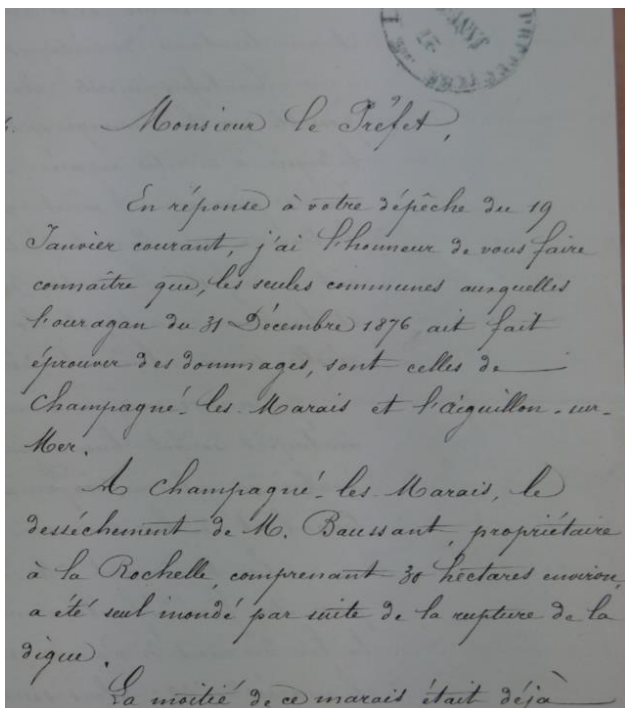 PRÉFECTURE
Monsieur le Préfet,
En réponse à votre dépêche du 19
Janvier courant, j'ai l'honneur de vous faire
connaître que, les seules communes auxquelles
l'ouragan du 31 Décembre 1876 ait fait
éprouver des dommages, sont celles de
Champagné-les-Marais et l'aiguillon-sur-
Mer.
A Champagné-les-Marais, le
desséchement de M. Baussant, propriétaire
à la Rochelle, comprenant 30 hectares environ,
a été seul inondé par suite de la rupture de la
digue.
La moitié de ce marais était déjà